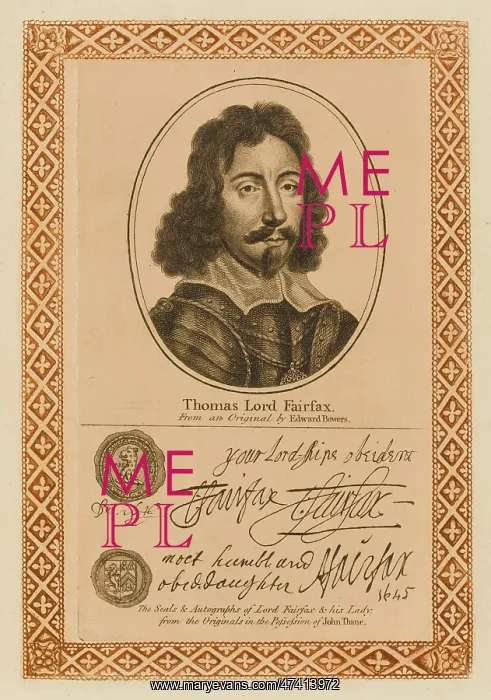 ME
PL
Thomas Lord Fairfax.
From an Original by Edward Bowers.
your Lord-ships obeident
ME
PL
T:Fairfax T:Fairfax
most humbl and
obeid: daughter A Fairfax
1645
The Seals & Autographs of Lord Fairfax & his Lady:
from the Originals in the Possession of John Thane.
www.maryevans.com/47413972